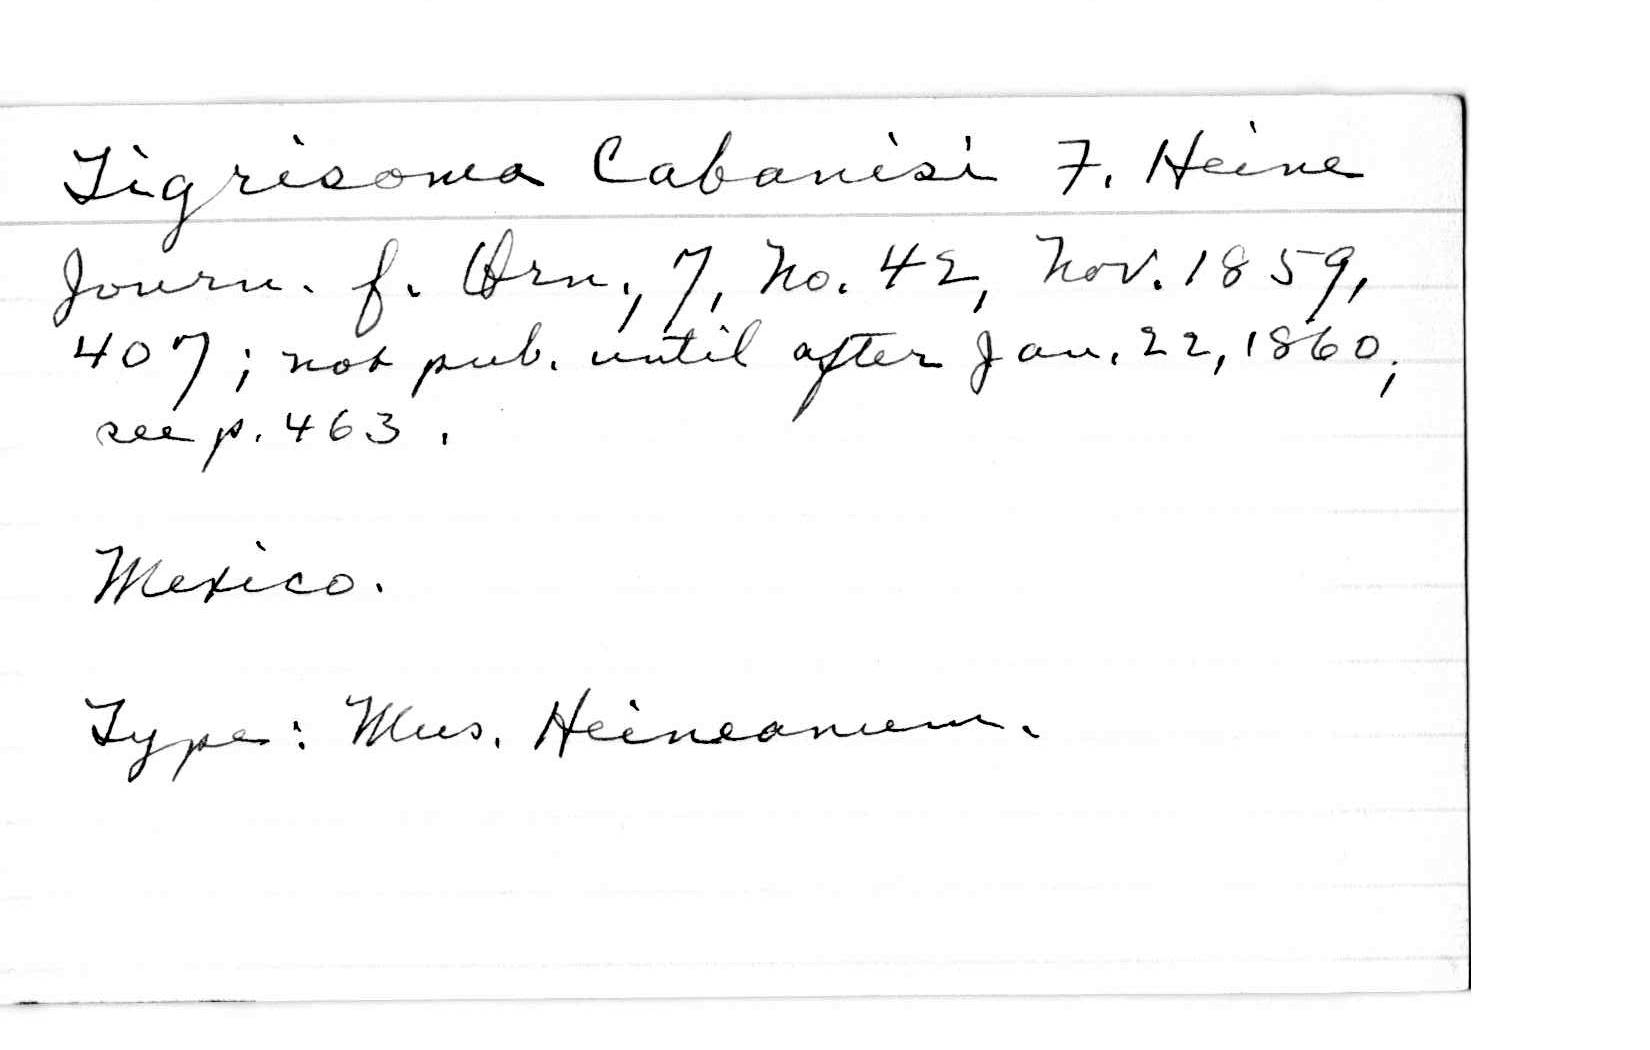 Tigrisoma Cabanisi F. Heine
Journ. f. Orn., 7, No. 42, Nov. 1859,
407; not pub. until after Jan. 22, 1860;
see p. 463.
Mexico.
Type: Mus. Heineanum.